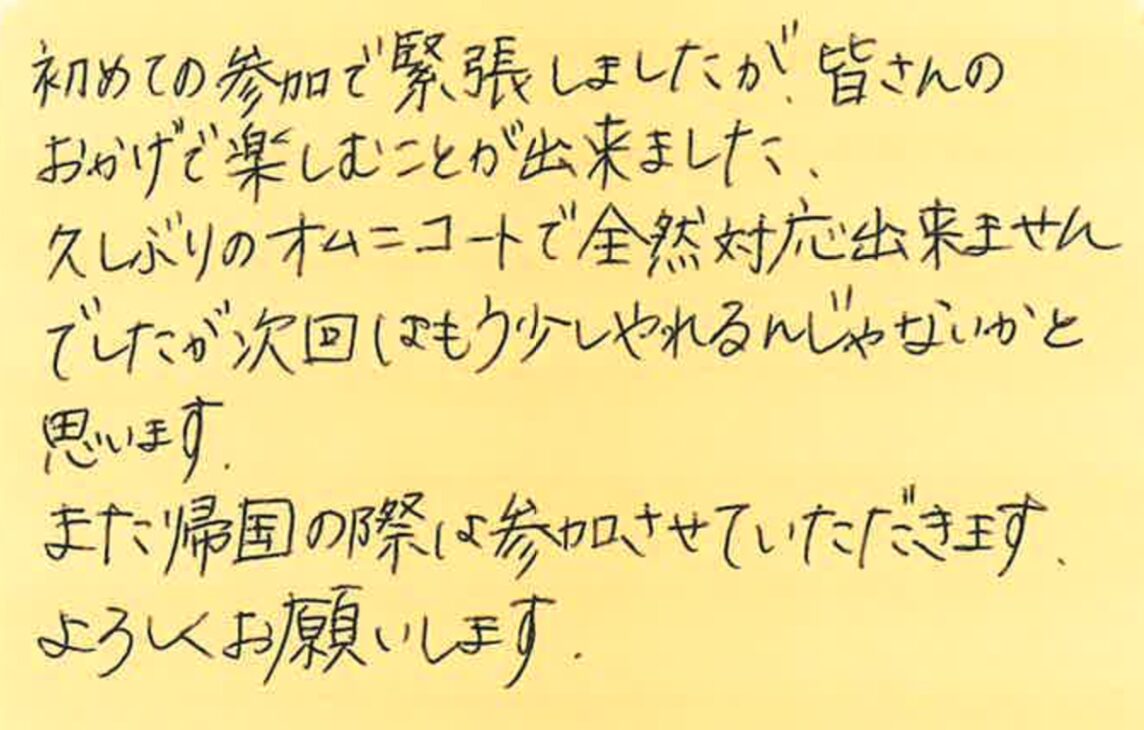 初めての参加で緊張しましたが、皆さんの
おかげで楽しむことが出来ました、
久しぶりのオムニコートで全然対応出来ません
でしたが次回はもう少しやれるんじゃないかと
思います.
また帰国の際は参加させていただきます、
よろしくお願いします.